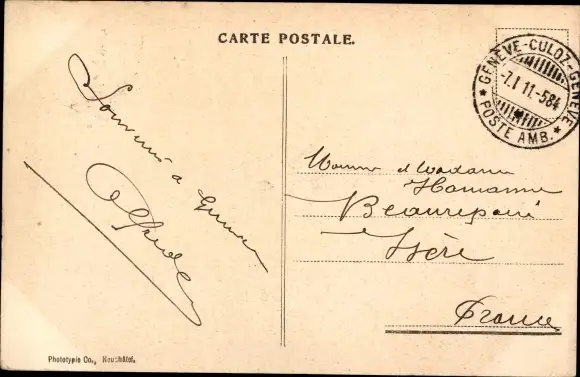 CARTE POSTALE.
GENÈVE-CULOZ-GENÈVE
-7.I 11.-584
POSTE AMB.
Souvenir de Genève
Monsieur et Madame
Hamanne
Beaurepaire
Isère
France
Phototypie Co., Neuchâtel.